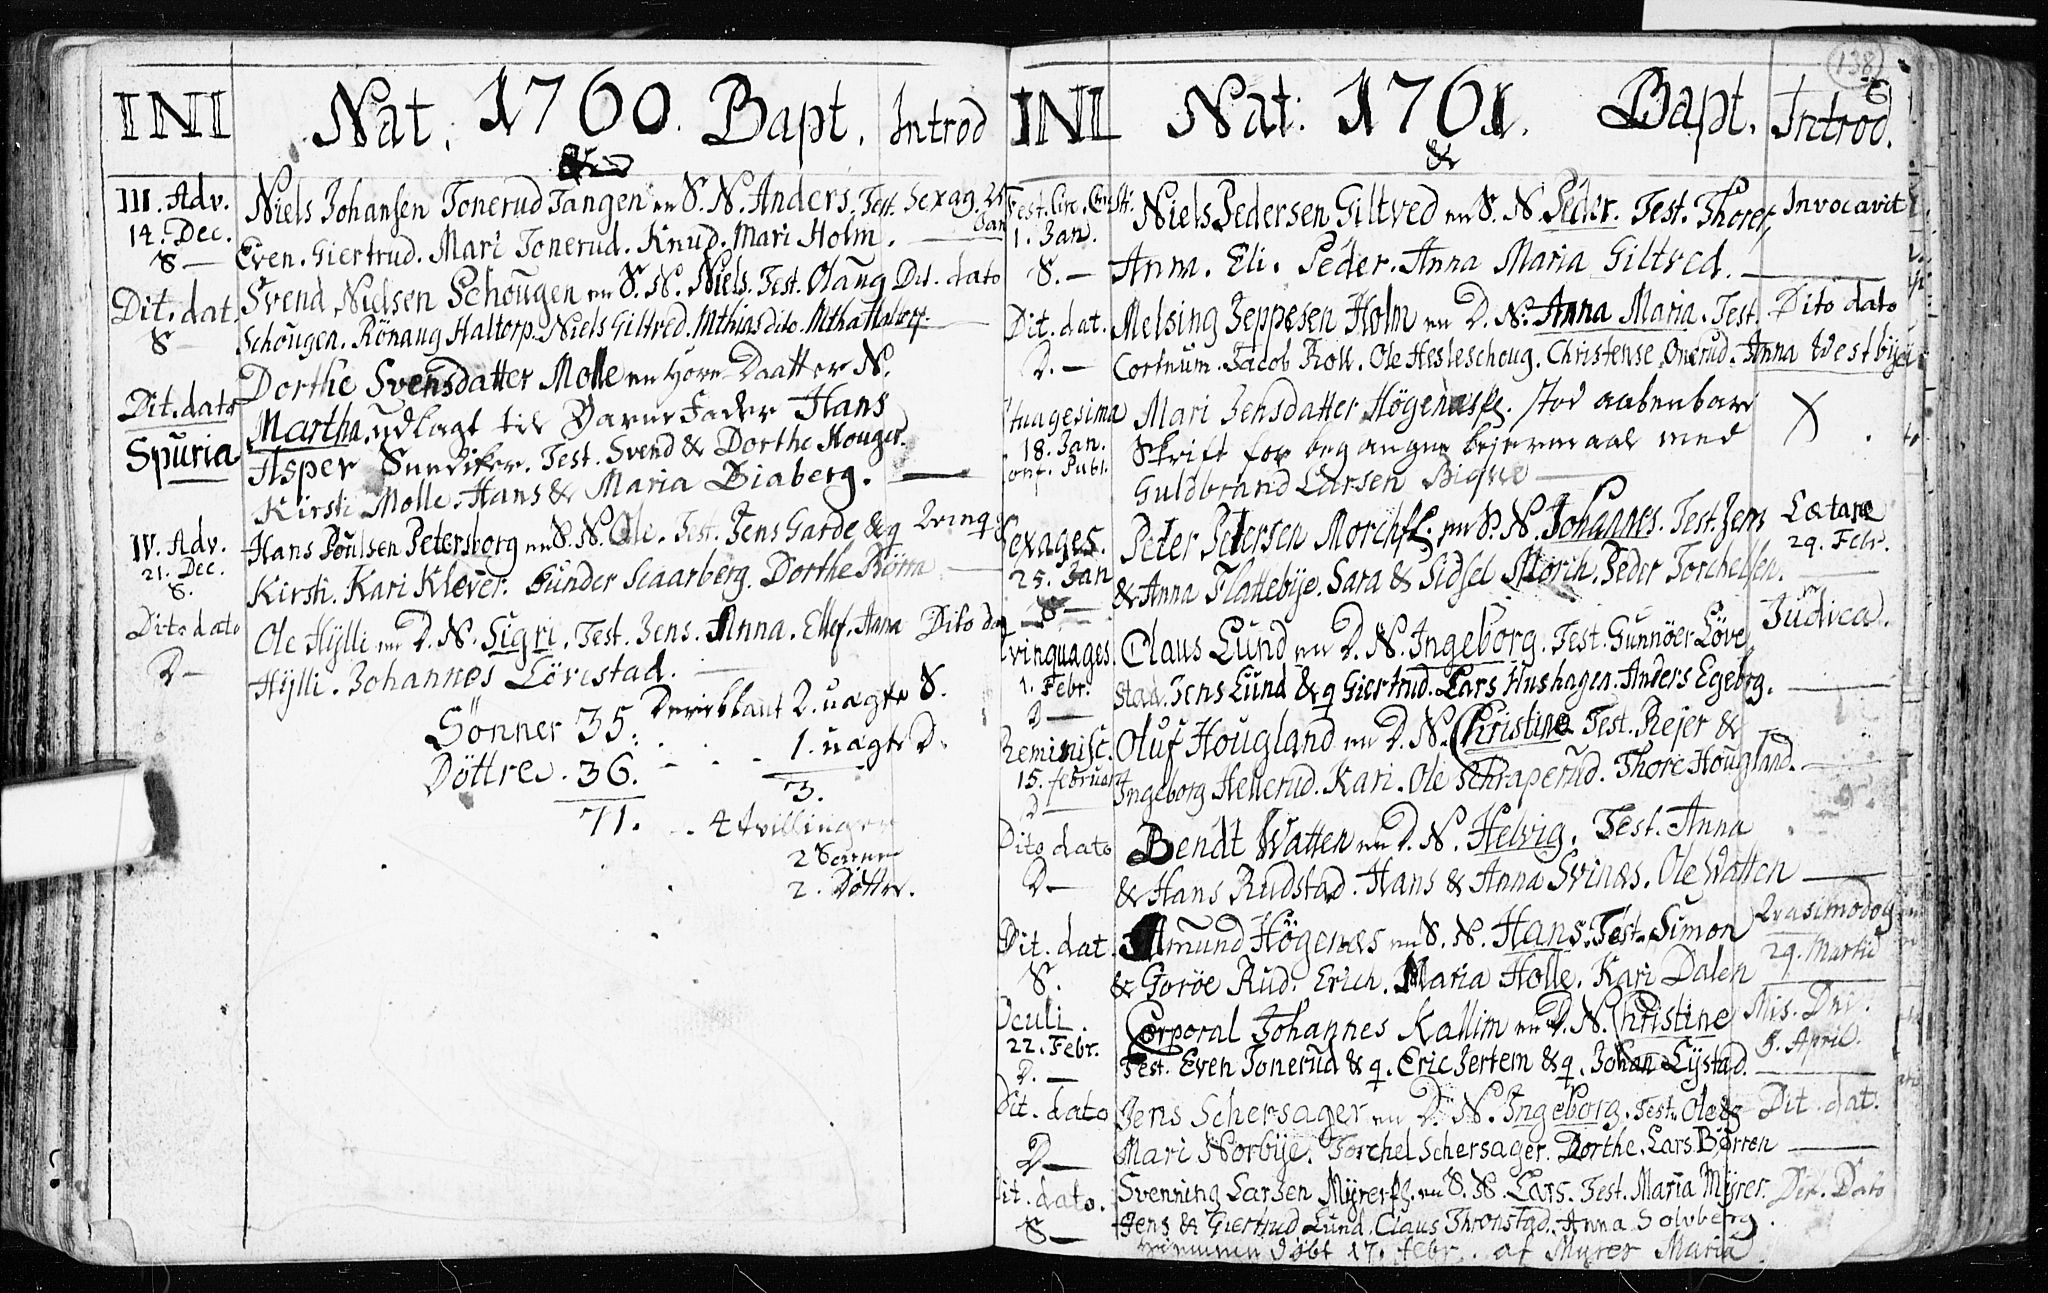 INI Nat. 1760. Bapt. Introd
&
III. Adv. Niels Johansen Tonerud Tangen en S. N. Anders. Test. Sexag. 25 Jan
14. Dec. Even. Giertrud. Mari Tonerud. Knud. Mari Holm.
S —
Dit. dat. Svend Nielsen Schougen en S. N. Niels. Test. Olaug Dit. dato
S Schougen. Rönaug Haltorp. Niels Giltved. Mthias dito. Mtha Haltorp.
Dorthe Svensdatter Molle en Hore-Daatter N.
Dit. dato Martha. udlagt til Barne Fader Hans
Spuria Asper Test. Svend & Dorthe Houger.
Kirsti Molle. Hans & Maria Diaberg.
IV. Adv. Hans Poulsen Petersborg en S. N. Ole. Test. Jens Garde & q Qvinq.
21. Dec. Kirsti. Kari Klever. Gunder Scaarberg. Dorthe Rörra
S.
Dito dato Ole Hÿlli en D. N. Sigri. Test. Jens. Anna. Ellef. Anna Dito dato
D — Hÿlli. Johannes Lövestad.
Sönner 35. Deriblant 2. uægte S.
Döttre. 36. 1. uægte D.
3.
71. 4 tvillinger
2 Sönner
2. Döttre.
138
6
INI Nat. 1761. Bapt. Introd.
&
Fest. Circ. Christi. Niels Pedersen Giltved en S. N. Peder. Test. Thorer, Invocavit
1. Jan. Anna. Eli. Peder. Anna Maria Giltved.
S. —
Dit. dat. Melsing Jeppesen Holm en D. N. Anna Maria. Test. Dito dato
D. — Cortnum. Jacob Kroll. Ole Hesleschoug. Christense Onerud. Anna Westbÿe
Mari Jensdatter Högenæs stod aabenbare X
18. Jan. Skrift for begangne lejermaal med
Conf. Publ. Guldbrand Larsen Bigse
Sexages. Peder Petersen Morch en S. N. Johannes. Test. Jens Lætare
25. Jan & Anna Flattebÿe. Sara & Sidsel Morch. Peder Torchelsen. 29. Febr.
S —
Qvinguages. Claus Lund en D. N. Ingeborg. Test. Gunnöer Löve Judica.
1. Febr. stad. Jens Lund & q Giertrud. Lars Hushagen. Anders Egebrg.
D —
Reminisc. Oluf Hougland en D. N. Christine. Test. Rejer &
15. februar Ingeborg Hellerud. Kari. Ole Schraperud. Thore Hougland.
D
Dito dato Bendt Watten en D. N. Helvig. Test. Anna
D — & Hans Rudstad. Hans & Anna Svinæs. Ole Watten
Dit. dat. Amund Högenæs en S. N. Hans. Test. Simon Qvasimodog
S. & Goröe Rud. Erich. Maria Holle. Kari Dalen 29. Martii
Oculi. Corporal Johannes Kallim en D. N. Christine Mis. Dni.
22. Febr. Test. Even Tonerud & q. Eric Jertem & q. Johan Lÿstad. 5. April.
D. —
Dit. dato Jens Schersager en D. N. Ingeborg. Test. Ole & Dit. dat.
D — Mari Norbÿe. Torchel Schersager. Dorthe. Lars Börren
Dit. dato. Svenning Larsen Mÿrer en S. N. Lars. Test. Maria Mÿrer. Dit. Dato
S — Jens & Giertrud Lund. Claus Thronstad. Anna Solvberg.
hiemme döbt 17. febr. af Myrer Maria